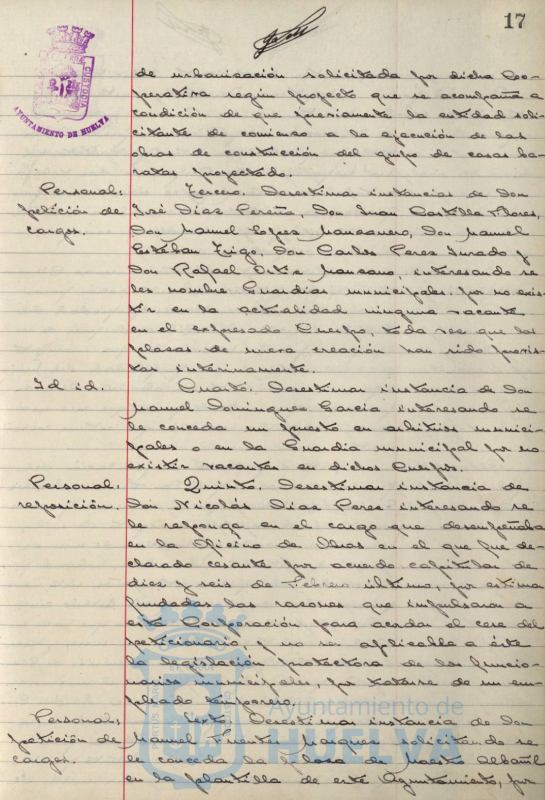 17
CUSTODIA
AYUNTAMIENTO DE HUELVA
de urbanización solicitada por dicha Coo-
perativa según proyecto que se acompaña a
condición de que previamente la entidad soli-
citante de comienzo a la ejecución de las
obras de construcción del grupo de casas ba-
ratas proyectado.
Personal:
petición de
cargos.
Tercero. Desestimar instancias de Don
José Díaz Pereña, Don Juan Castilla Flores,
Don Manuel Lopez Manzanero, Don Manuel
Esteban Trigo, Don Carlos Perez Jurado y
Don Rafael Ortiz Manzano, interesando se
les nombre Guardias municipales, por no exis-
tir en la actualidad ninguna vacante
en el expresado Cuerpo, toda vez que las
plazas de nueva creación han sido provis-
tas interinamente.
Id id.
Cuarto. Desestimar instancia de Don
Manuel Dominguez Garcia interesando se
le conceda un puesto en arbitrios munici-
pales o en la Guardia municipal por no
existir vacantes en dichos Cuerpos.
Personal:
reposición.
Quinto. Desestimar instancia de
Don Nicolás Diaz Perez interesando se
le reponga en el cargo que desempeñaba
en la Oficina de Obras en el que fue de-
clarado cesante por acuerdo capitular de
diez y seis de Febrero último, por estimar
fundadas las razones que impulsaron a
esta Corporación para acordar el cese del
peticionario, y no ser aplicable a éste
la legislación protectora de los funcio-
narios municipales, por tratarse de un em-
pleado temporero.
Personal:
petición de
cargos.
Sexto. Desestimar instancia de Don
Manuel Fuentes Marquez solicitando se
le conceda la plaza de Maestro Albañil
en la plantilla de este Ayuntamiento, por
Ayuntamiento de
HUELVA